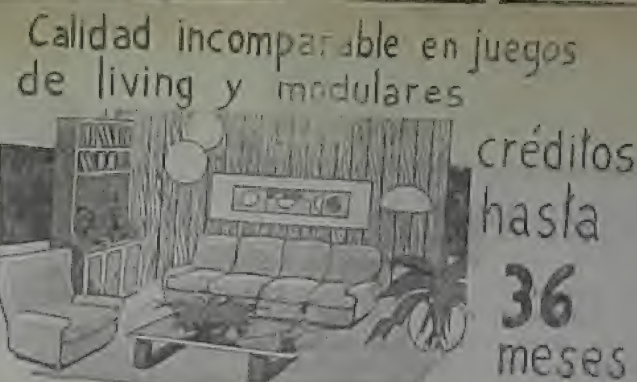 Calidad incomparable en juegos
de living y modulares
créditos
hasta
36
meses